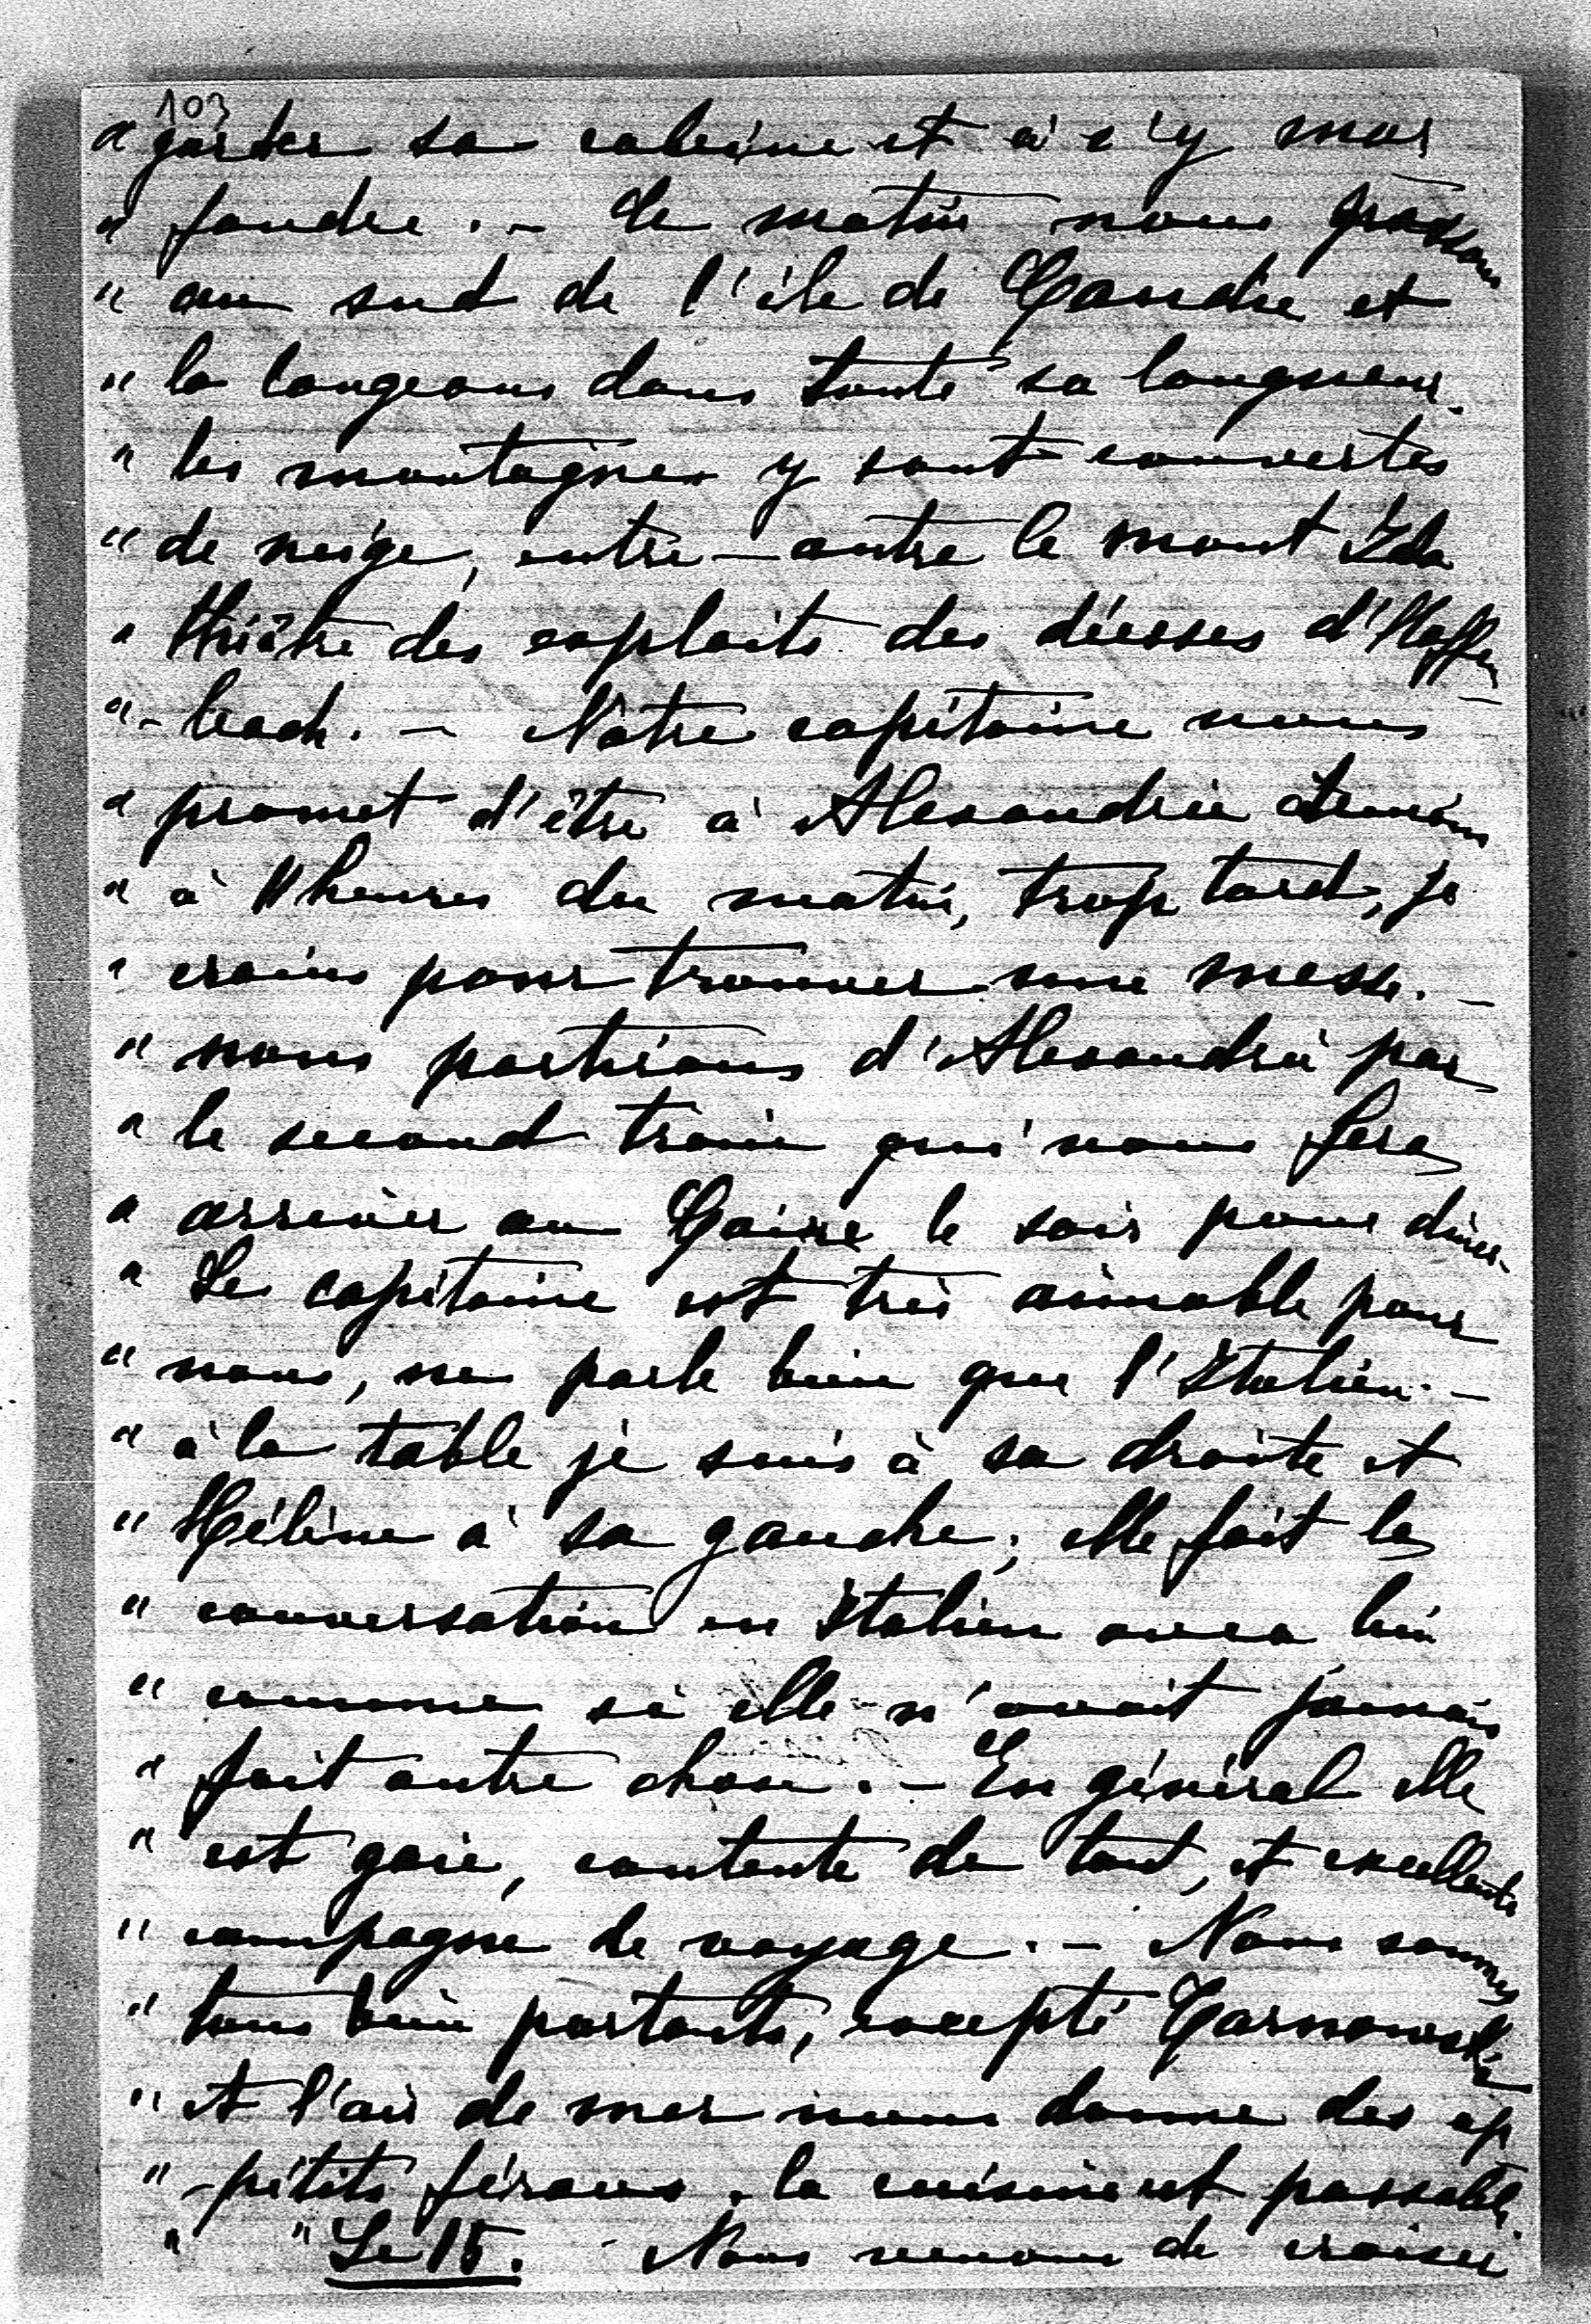 103
" garder sa cabine et à s'y mor
" fondre. - Le matin nous passons
" au sud de l'île de Candie et
" la longeons dans toute sa longueur.
" les montagnes y sont couvertes
" de neige, entre-autre le mont Ida
" théâtre des exploits des déesses d'Hoffen
" - bach. - Nôtre capitaine nous
" promet d'être à Alexandrie demain
" à 11 heures du matin, trop tard, je
" crains pour trouver une messe. -
" nous partirons d'Alexandrie par
" le second train qui nous fera
" arriver au Caire le soir pour dîner.
" Le capitaine est très aimable pour
" nous, ne parle bien que l'Italien. -
" à la table je suis à sa droite et
" Hélène à sa gauche; elle fait la
" conversation en Italien avec lui
" comme si elle n'avait jamais
" fait autre chose. - En général elle
" est gaie, contente de tout, et excellente
" compagne de voyage. - Nous sommes
" tous bien portants, excepté Tarnowski
" et l'air de mer nous donne des ap
" - pétits féroces. la cuisine est passable.
" " Le 15. Nous venons de croiser